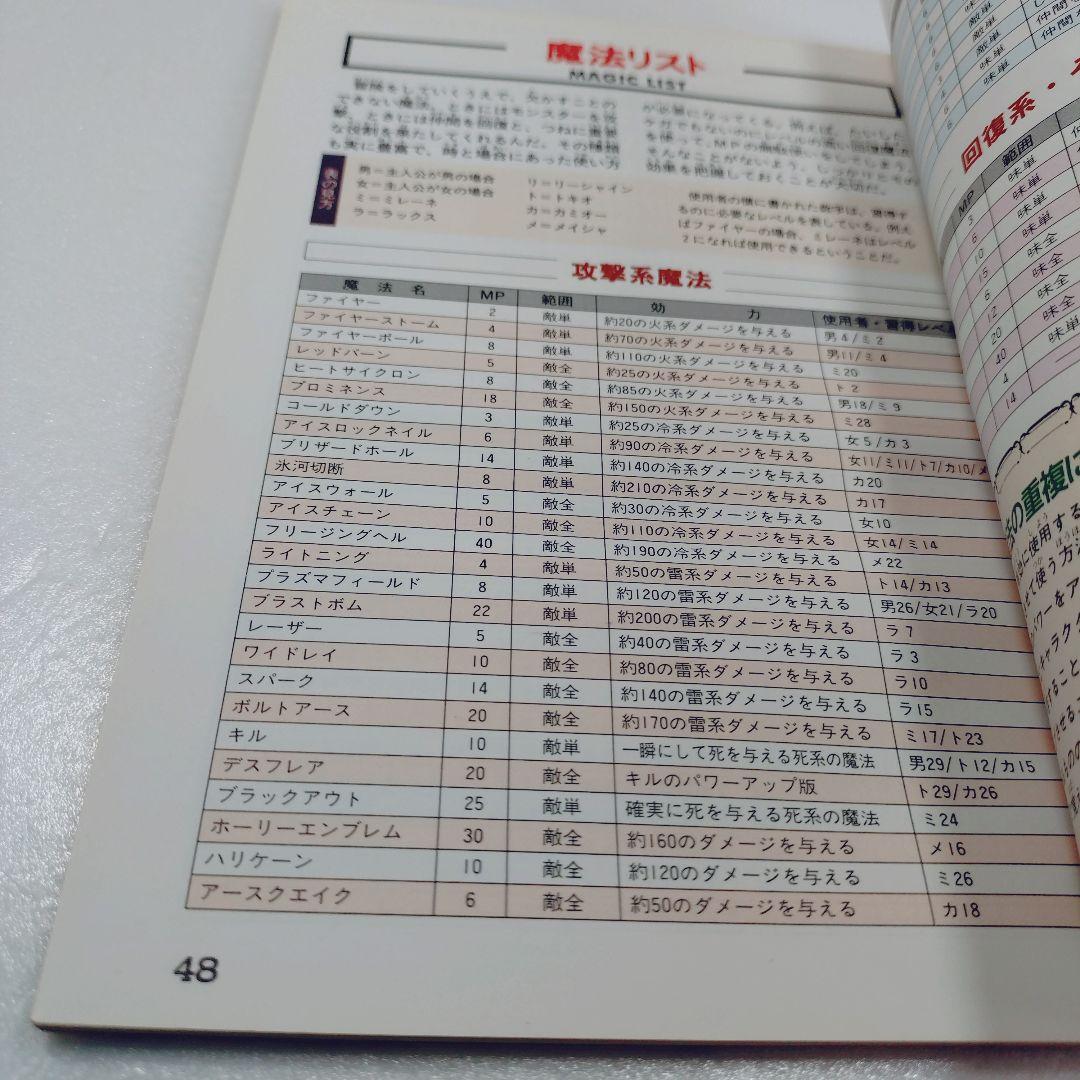 魔法リスト
MAGIC LIST
冒険をしていくうえで、欠かすことの
できない魔法。ときにはモンスターを攻
撃、ときには仲間を回復と、つねに重要
な役割を果たしてくれるんだ。その種類
も実に豊富で、時と場合にあった使い方
が必要になってくる。例えば、たいした
ケガでもないのにレベルの高い回復魔法
を使って、MPの無駄使いをしてしまう。
そんなことがないよう、しっかりとその
効果を把握しておくことが大切だ。
表の見方
男=主人公が男の場合
女=主人公が女の場合
ミ=ミレーネ
ラ=ラックス
リ=リーシャイン
ト=トキオ
カ=カミオー
メ=メイシャ
使用者の横に書かれた数字は、習得す
るのに必要なレベルを表している。例え
ばファイヤーの場合、ミレーネはレベル
2になれば使用できるということだ。
攻撃系魔法
魔法名 MP 範囲 効力 使用者・習得レベル
ファイヤー 2 敵単 約20の火系ダメージを与える 男4/ミ2
ファイヤーストーム 4 敵単 約70の火系ダメージを与える 男11/ミ4
ファイヤーボール 8 敵単 約110の火系ダメージを与える ミ20
レッドバーン 5 敵全 約25の火系ダメージを与える ト2
ヒートサイクロン 8 敵全 約85の火系ダメージを与える 男18/ミ9
プロミネンス 18 敵全 約150の火系ダメージを与える ミ28
コールドダウン 3 敵単 約25の冷系ダメージを与える 女5/カ3
アイスロックネイル 6 敵単 約90の冷系ダメージを与える 女11/ミ11/ト7/カ10/メ
ブリザードホール 14 敵単 約140の冷系ダメージを与える カ20
氷河切断 8 敵単 約210の冷系ダメージを与える カ17
アイスウォール 5 敵全 約30の冷系ダメージを与える 女10
アイスチェーン 10 敵全 約110の冷系ダメージを与える 女14/ミ14
フリージングヘル 40 敵全 約190の冷系ダメージを与える メ22
ライトニング 4 敵単 約50の雷系ダメージを与える ト14/カ13
プラズマフィールド 8 敵単 約120の雷系ダメージを与える 男26/女21/ラ20
ブラストボム 22 敵単 約200の雷系ダメージを与える ラ7
レーザー 5 敵全 約40の雷系ダメージを与える ラ3
ワイドレイ 10 敵全 約80の雷系ダメージを与える ラ10
スパーク 14 敵全 約140の雷系ダメージを与える ラ15
ボルトアース 20 敵全 約170の雷系ダメージを与える ミ17/ト23
キル 10 敵単 一瞬にして死を与える死系の魔法 男29/ト12/カ15
デスフレア 20 敵全 キルのパワーアップ版 ト29/カ26
ブラックアウト 25 敵単 確実に死を与える死系の魔法 ミ24
ホーリーエンブレム 30 敵全 約160のダメージを与える メ16
ハリケーン 10 敵全 約120のダメージを与える ミ26
アースクエイク 6 敵全 約50のダメージを与える カ18
48
味単
敵単 仲間
敵単 仲間
味単
回復系・
MP 範囲
3 味単
6 味単
10 味単
15 味全
6 味全
12 味全
20 味全
40 味単
4
14
の重複は
に使用する
て使う方
パワーをア
キャラク
ること
させる